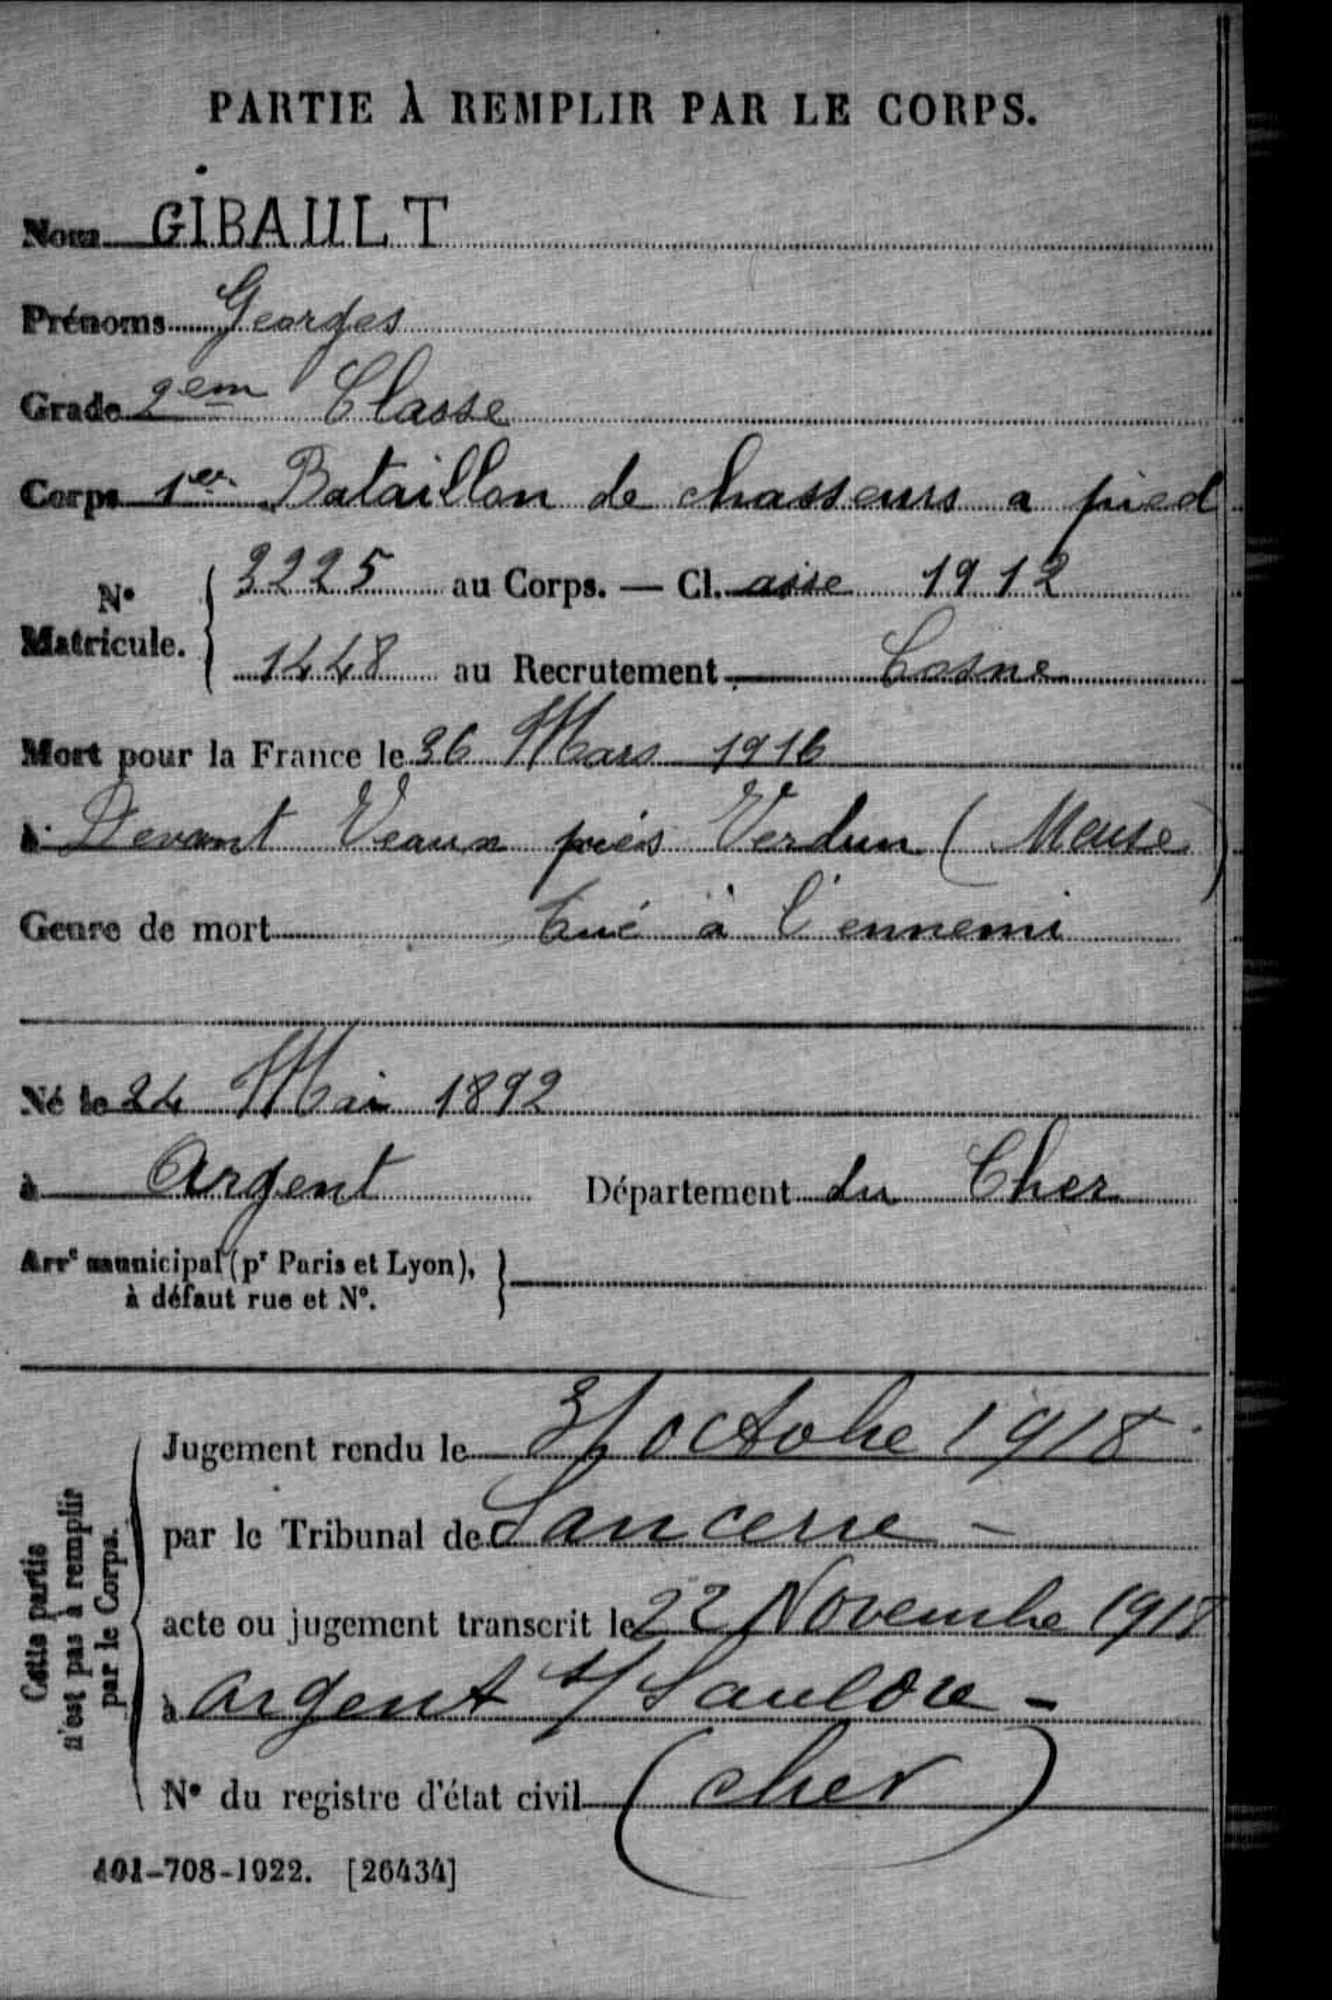 PARTIE À REMPLIR PAR LE CORPS.
Nom GIBAULT
Prénoms Georges
Grade 2em Classe
Corps 1er Bataillon de chasseurs a pied
N° Matricule. { 3225 au Corps. — Cl. asse 1912
1448 au Recrutement Cosne
Mort pour la France le 26 Mars 1916
à Devant Veaux près Verdun (Meuse)
Genre de mort tué à l'ennemi
Né le 24 Mai 1892
à Argent Département du Cher
Arrt municipal (pr Paris et Lyon),
à défaut rue et N°.
Cette partie
n'est pas à remplir
par le Corps.
Jugement rendu le 31 octobre 1918
par le Tribunal de Sancerre -
acte ou jugement transcrit le 22 Novembre 1918
à argent s/ Sauldre -
N° du registre d'état civil (cher)
401-708-1922. [26434]